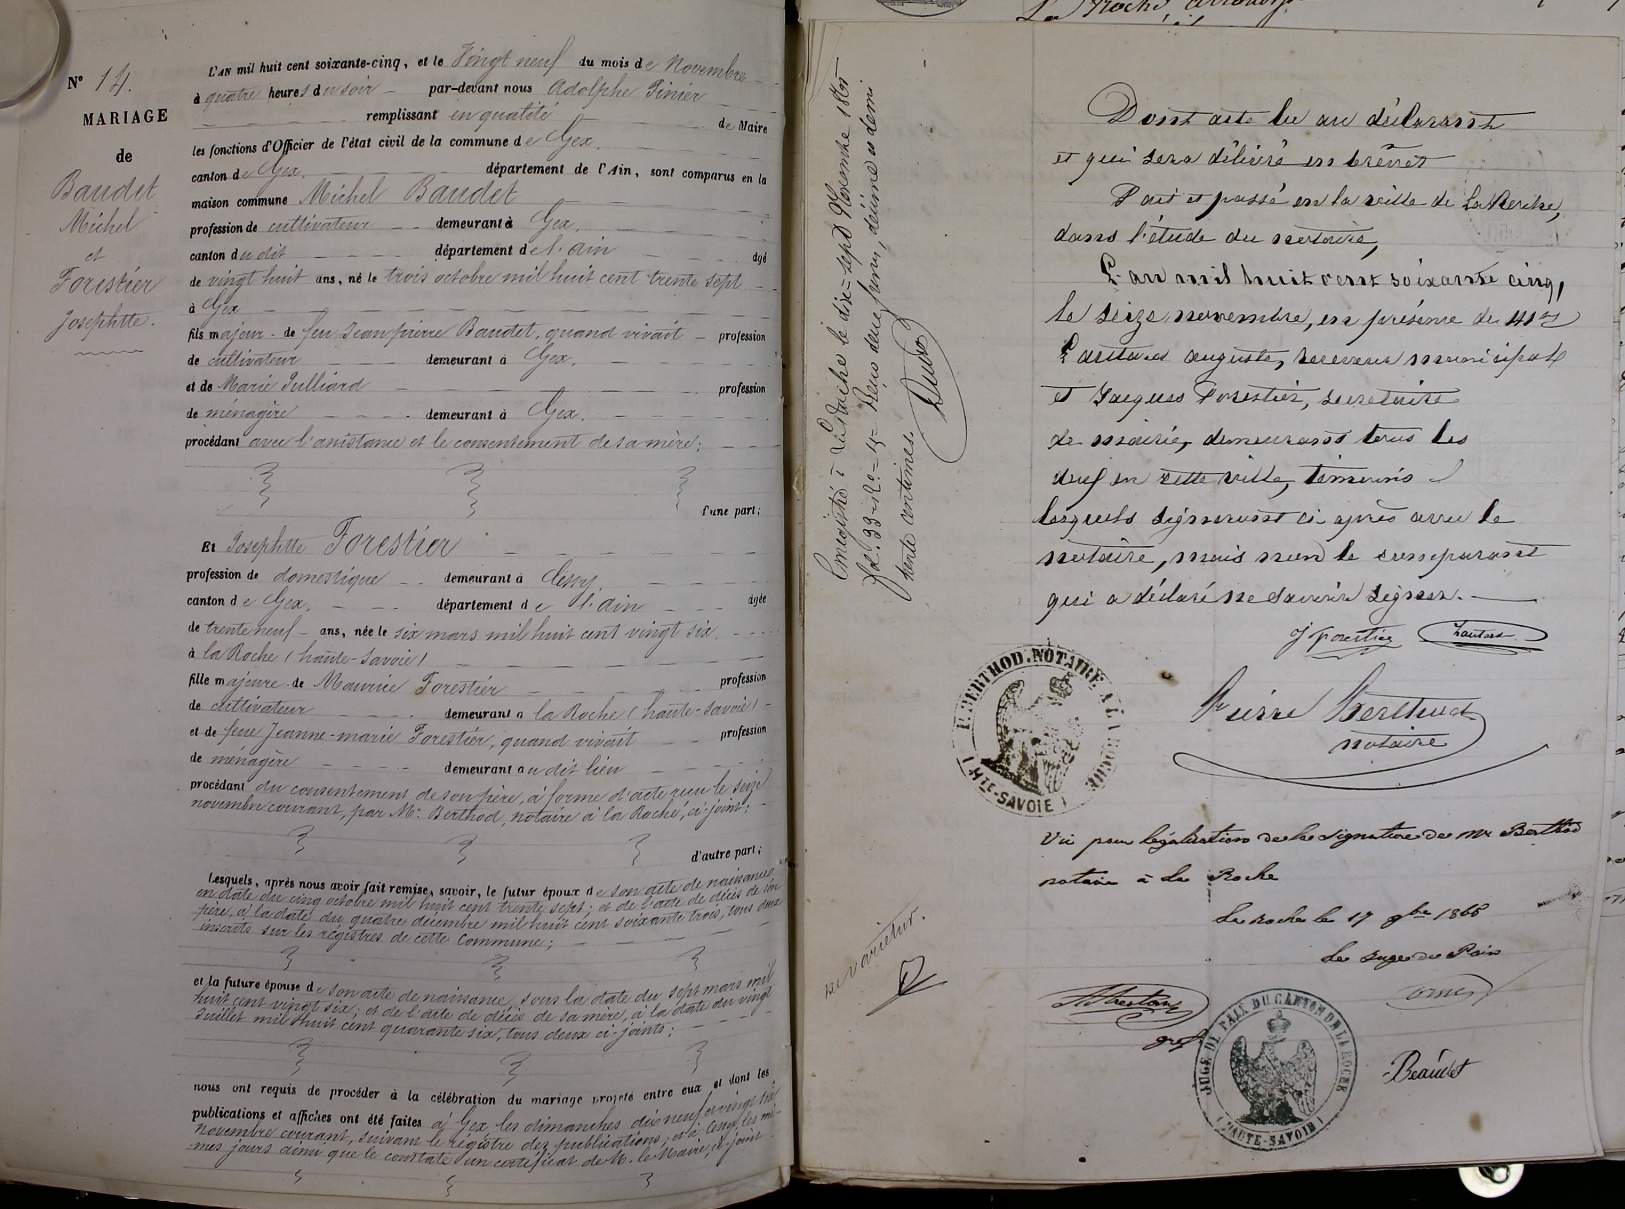 N° 14.
MARIAGE
de
Baudet
Michel
et
Forestier
Josephtte.
L'AN mil huit cent soixante-cinq, et le Vingt neuf du mois de Novembre
à quatre heures du soir par-devant nous Adolphe Pinier
remplissant en qualité de Maire
les fonctions d'Officier de l'état civil de la commune de Gex.
canton de Gex. département de l'Ain, sont comparus en la
maison commune Michel Baudet
profession de cultivateur demeurant à Gex.
canton du dit département de l'ain âgé
de vingt huit ans, né le trois octobre mil huit cent trente sept
à Gex
fils majeur de feu Jean pierre Baudet, quand vivait profession
de cultivateur demeurant à Gex.
et de Marie Julliard profession
de ménagère demeurant à Gex.
procédant avec l'assistance et le consentement de sa mère;
d'une part;
Et Josephtte Forestier
profession de domestique demeurant à Cessy.
canton de Gex. département de l'ain âgée
de trente neuf ans, née le six mars mil huit cent vingt six.
à la Roche (haute-Savoie)
fille majeure de Maurice Forestier profession
de cultivateur demeurant à la Roche (haute-savoie)
et de feue Jeanne-marie Forestier, quand vivait profession
de ménagère demeurant au dit lieu
procédant du consentement de son père, à forme d'acte reçu le seize
novembre courant, par Me Berthod, notaire à la Roche, ci-joint;
d'autre part;
Lesquels, après nous avoir fait remise, savoir, le futur époux de son acte de naissance
en date du cinq octobre mil huit cent trente sept; et de l'acte de décès de son
père, à la date du quatre décembre mil huit cent soixante trois, tous deux
inscrits sur les régistres de cette Commune;
et la future épouse de son acte de naissance, sous la date du sept mars mil
huit cent vingt six; et de l'acte de décès de sa mère, à la date du vingt
Juillet mil huit cent quarante six, tous deux ci-joints;
nous ont requis de procéder à la célébration du mariage projeté entre eux et dont les
publications et affiches ont été faites à Gex les dimanches dix neuf et vingt six
novembre courant, suivant le régistre des publications; et à Cessy, les mê-
mes jours ainsi que le constate un certificat de M. le Maire, ci-joint
La Roche
Dont acte lu au déclarant
et qui sera délivré en brevet
Fait et passé en la ville de La Roche,
dans l'étude du notaire,
L'an mil huit cent soixante cinq,
le seize novembre, en présence de Mrs
auguste, receveur municipal
et Jacques Forestier, secrétaire
de mairie, demeurant tous les
deux en cette ville, témoins
lesquels signeront ci-après avec le
notaire, mais non le comparant
qui a déclaré ne savoir signer.
J Forestier
Pierre Berthod
notaire
P. BERTHOD. NOTAIRE A LA ROCHE
(HTE-SAVOIE)
Vu pour légalisation de la signature de Mr Berthod
notaire à La Roche
La Roche le 17 9bre 1865
Le Juge de Paix
gref
JUGE DE PAIX DU CANTON DE LA ROCHE
(HAUTE-SAVOIE)
Beaudet
Enregistré à La Roche le dix-sept Novembre 1865
fol. 33 Reçu deux francs, décime et demi
trente centimes.
ne varietur.